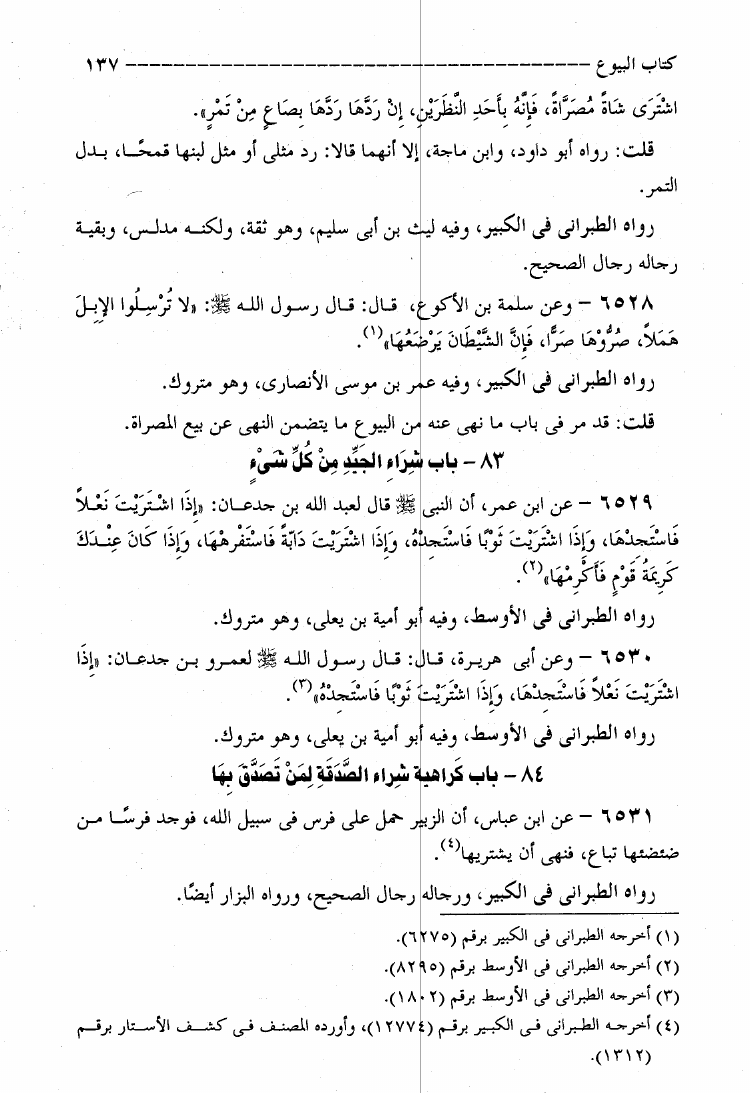 كتاب البيوع ـــــــــــــــــــــــــــــــــــــــــ ١٣٧
اشْتَرَى شَاةً مُصَرَّاةً، فَإِنَّهُ بِأَحَدِ النَّظَرَيْنِ، إِنْ رَدَّهَا رَدَّهَا بِصَاعٍ مِنْ تَمْرٍ».
قلت: رواه أبو داود، وابن ماجة، إلا أنهما قالا: رد مثلى أو مثل لبنها قمحًا، بدل
التمر.
رواه الطبرانى فى الكبير، وفيه ليث بن أبى سليم، وهو ثقة، ولكنه مدلس، وبقية
رجاله رجال الصحيح.
٦٥٢٨ – وعن سلمة بن الأكوع، قال: قال رسول الله ﷺ: «لا تُرْسِلُوا الإِبِلَ
هَمَلاً، صُرُّوْهَا صَرًّا، فَإِنَّ الشَّيْطَانَ يَرْضَعُهَا»(١).
رواه الطبرانى فى الكبير، وفيه عمر بن موسى الأنصارى، وهو متروك.
قلت: قد مر فى باب ما نهى عنه من البيوع ما يتضمن النهى عن بيع المصراة.
٨٣ – باب شِرَاءِ الجَيِّدِ مِنْ كُلِّ شَىْءٍ
٦٥٢٩ – عن ابن عمر، أن النبى ﷺ قال لعبد الله بن جدعان: «إِذَا اشْتَرَيْتَ نَعْلاً
فَاسْتَجِدْهَا، وَإِذَا اشْتَرَيْتَ ثَوْبًا فَاسْتَجِدْهُ، وَإِذَا اشْتَرَيْتَ دَابَّةً فَاسْتَفْرِهْهَا، وَإِذَا كَانَ عِنْدَكَ
كَرِيمَةُ قَوْمٍ فَأَكْرِمْهَا»(٢).
رواه الطبرانى فى الأوسط، وفيه أبو أمية بن يعلى، وهو متروك.
٦٥٣٠ – وعن أبى هريرة، قال: قال رسول الله ﷺ لعمرو بن جدعان: «إِذَا
اشْتَرَيْتَ نَعْلاً فَاسْتَجِدْهَا، وَإِذَا اشْتَرَيْتَ ثَوْبًا فَاسْتَجِدْهُ»(٣).
رواه الطبرانى فى الأوسط، وفيه أبو أمية بن يعلى، وهو متروك.
٨٤ – باب كَرَاهِيةِ شِرَاءِ الصَّدَقَةِ لِمَنْ تَصَدَّقَ بِهَا
٦٥٣١ – عن ابن عباس، أن الزبير حمل على فرس فى سبيل الله، فوجد فرسًا من
ضئضئها تباع، فنهى أن يشتريها(٤).
رواه الطبرانى فى الكبير، ورجاله رجال الصحيح، ورواه البزار أيضًا.
(١) أخرجه الطبرانى فى الكبير برقم (٦٢٧٥).
(٢) أخرجه الطبرانى فى الأوسط برقم (٨٢٩٥).
(٣) أخرجه الطبرانى فى الأوسط برقم (١٨٠٢).
(٤) أخرجه الطبرانى فى الكبير برقم (١٢٧٧٤)، وأورده المصنف فى كشف الأستار برقم
(١٣١٢).